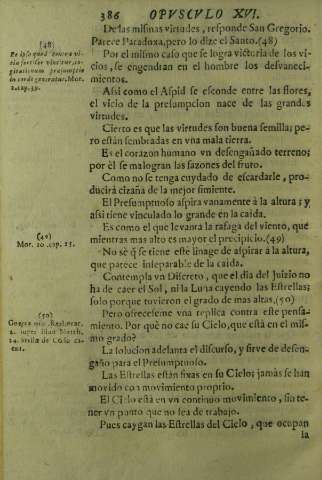 386 OPVSCVLO XVI.
De las mismas virtudes, responde San Gregorio.
Parece Paradoxa, pero lo dize el Santo.(48)
Por el mismo caso que se logra victoria de los vi-
cios, se engendran en el hombre los desvaneci-
mientos.
Assi como el Aspid se esconde entre las flores,
el vicio de la presumpcion nace de las grandes
virtudes.
Cierto es que las virtudes son buena semilla; pe-
ro estàn sembradas en vna mala tierra.
Es el corazon humano vn desengañado terreno;
por èl se malogran las sazones del fruto.
Como no se tenga cuydado de escardarle, pro-
ducirà cizaña de la mejor simiente.
El Presumptuoso aspira vanamente à la altura; y
assi tiene vinculado lo grande en la caìda.
Es como el que levanta la rafaga del viento, que
mientras mas alto es mayor el precipicio.(49)
No sè q̃ se tiene este image de aspirar à la altura,
que parece inseparable de la caìda.
Contempla vn Discreto, que el dia del Juizio no
ha de caer el Sol, ni la Luna cayendo las Estrellas;
solo porque tuvieron el grado de mas altas.(50)
Pero ofreceseme vna replica contra este pensa-
miento. Por què no cae su Cielo, que està en el mis-
mo grado?
La solucion adelanta el discurso, y sirve de desen-
gaño para el Presumptuoso.
Las Estrellas estàn fixas en su Cielo; jamàs se han
movido con movimiento proprio.
El Cielo està en vn continuo movimiento, sin te-
ner vn punto que no sea de trabajo.
Pues caygan las Estrellas del Cielo, que ocupan
la
(48)
(49)
Mor. 20. cap. 25.
(50)